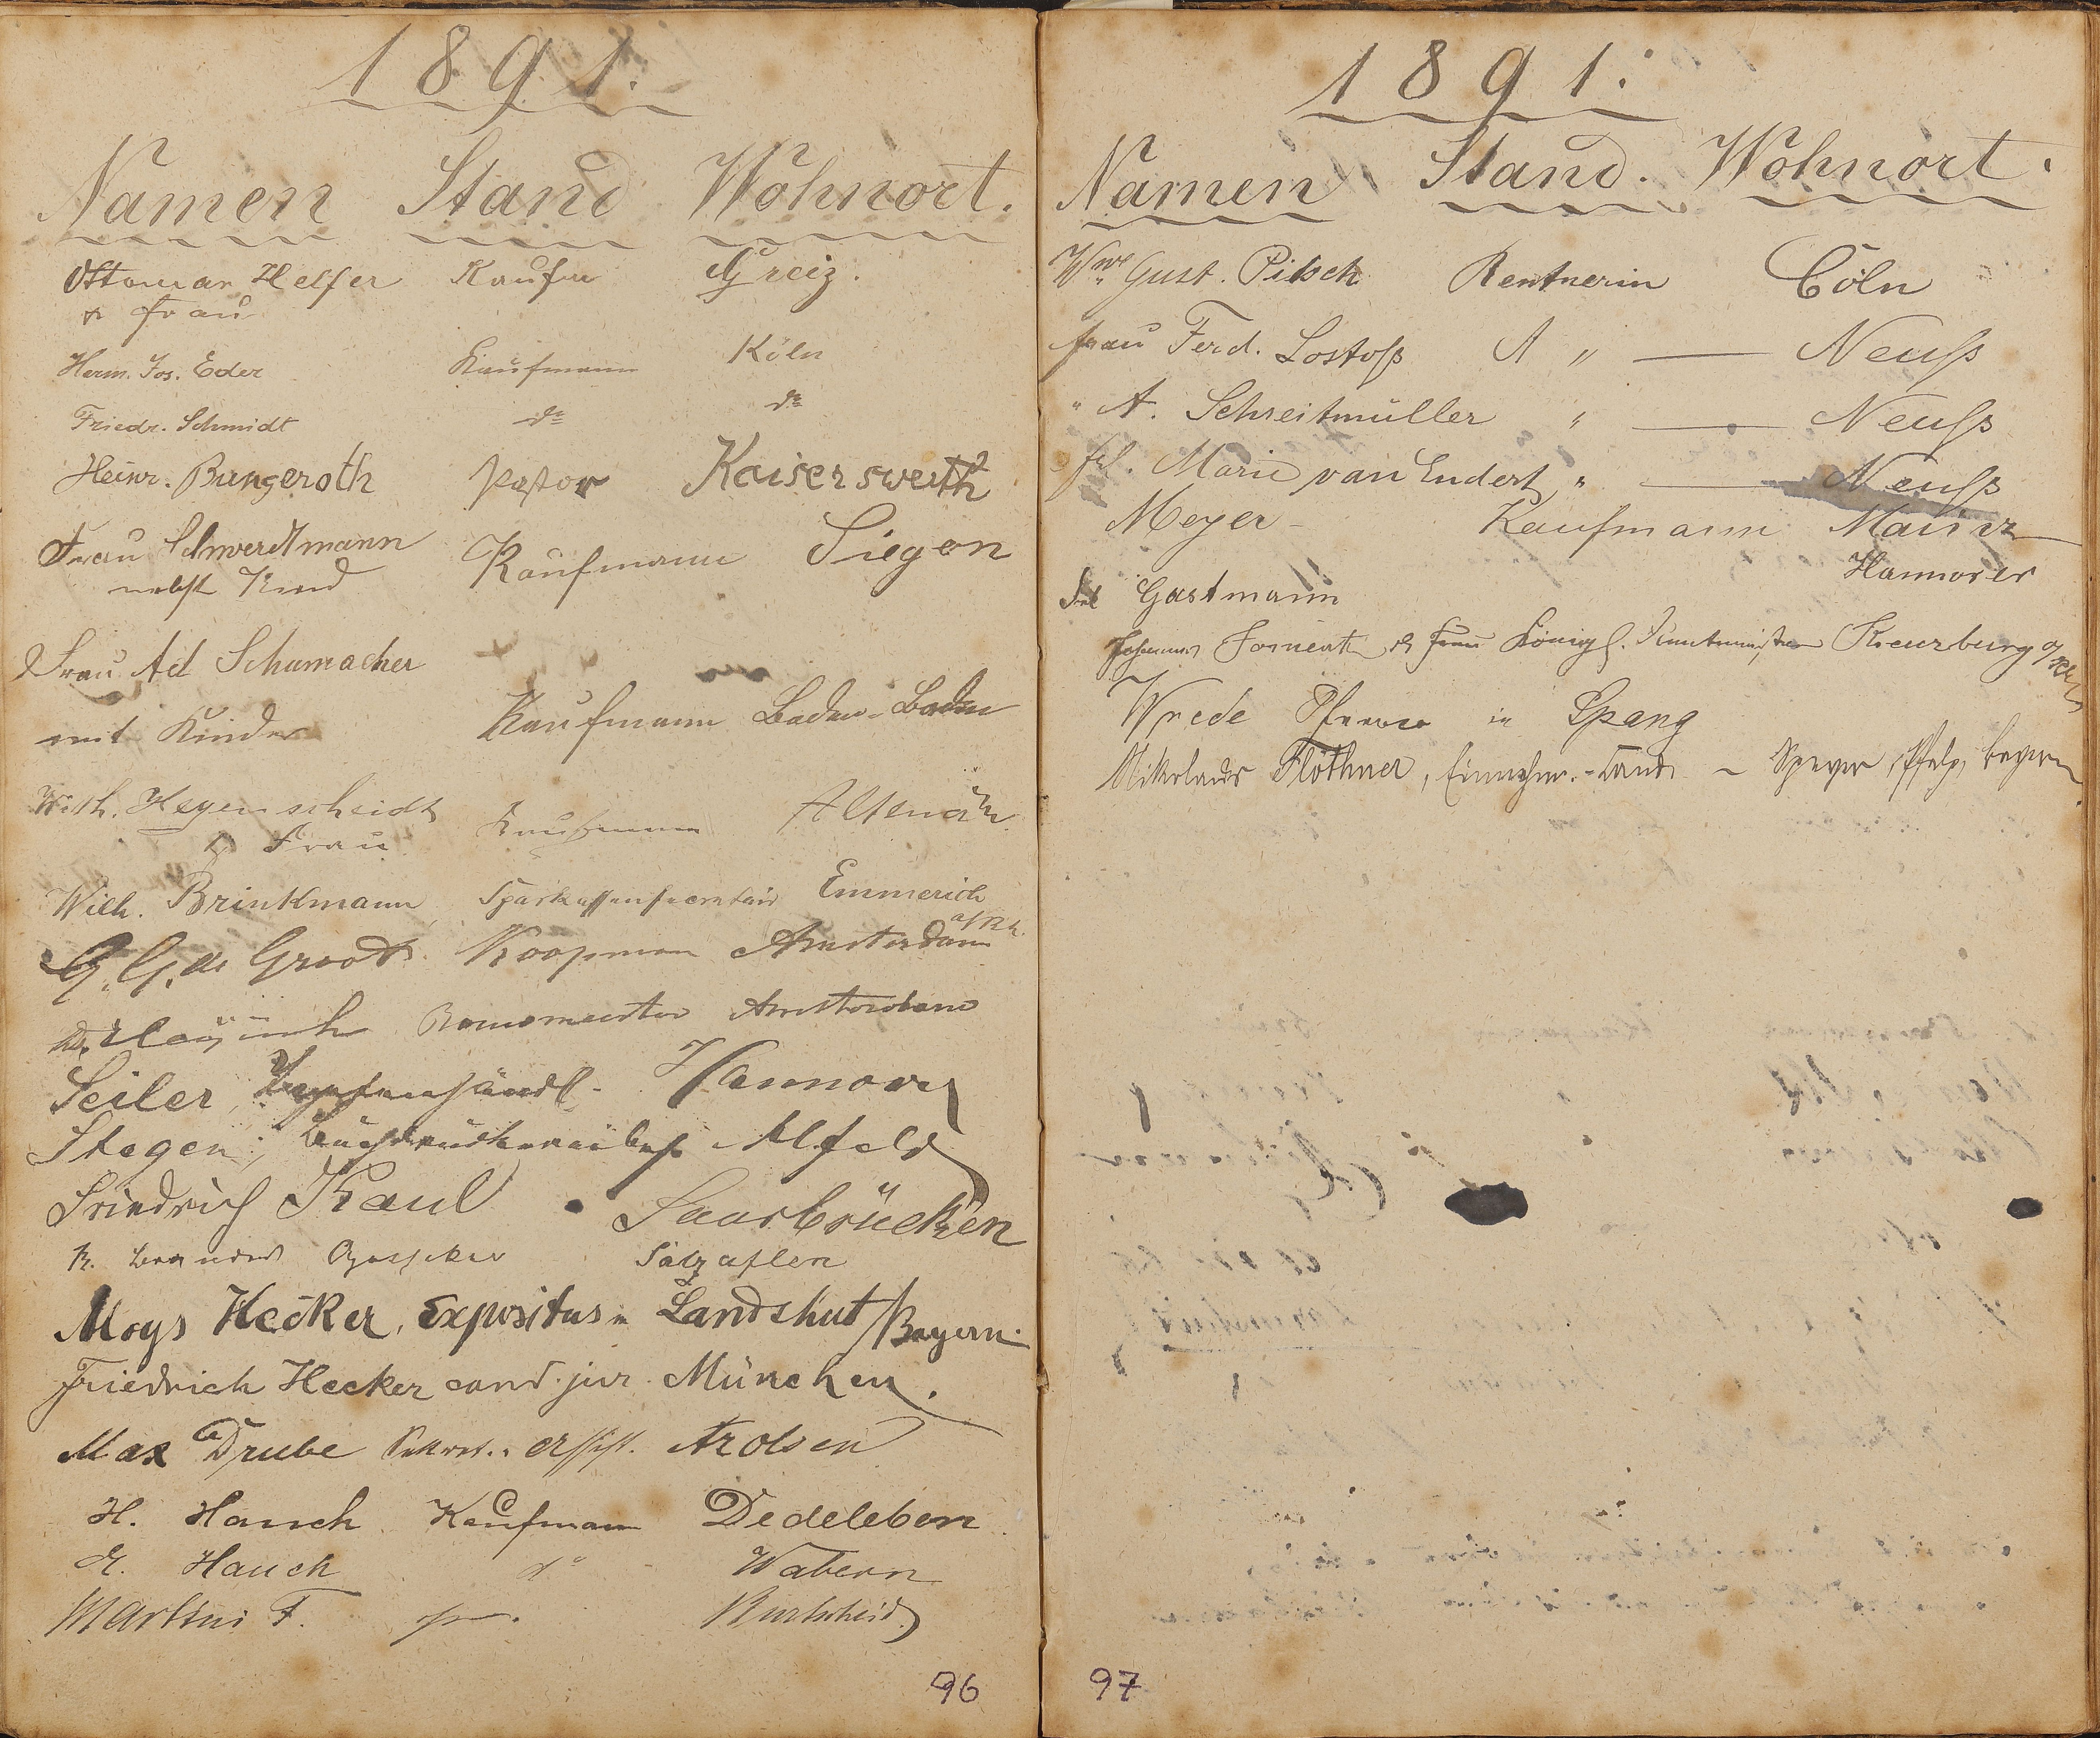 1891.
Namen Stand Wohnort.
Ottomar Helfer Kaufm Greiz.
& Frau
Herm. Jos. Eder Kaufmann Köln
Friedr. Schmidt do do
Heinr. Bungeroth Pastor Kaiserswerth
Frau Schwerdtmann Kaufmann Siegen
nebst Kind
Frau Ad Schumacher
mit Kinder Kaufmann Baden-Baden
Wilh. Hegenscheidt Kaufmann Altena
& Frau
Wilh. Brinkmann Sparkassensecretair Emmerich
a/Rh.
G. G. de Groot Koopman Amsterdam
Amsterdam
Seiler, Hannover
Stegen, Buchdruckereibes. Alfeld
Friedrich Kaul Saarbrücken
R. Brandes Apotheker Salzuflen
Aloys Hecker, Expositus in Landshut/Bayern.
Friedrich Hecker cand. jur. München.
Max Drube Sekret. Assist. Arolsen
H. Hauch Kaufmann Dedeleben
E. Hauch do Wabern
Martini F. Burtscheid
96
1891.
Namen Stand. Wohnort.
Wwe Gust. Pitsch Rentnerin Cöln
Frau Ferd. Lostoß " Neuß
" A. Schreitmüller " Neuß
Frl. Marie van Endert " Neuß
Meyer Kaufmann Mainz
Hannover
Frl Gastmann
Johannes & Frau Königl. Kreuzburg
Wrede Pfarrer in Spang
Nikolaus Flöthner, Einnehm. - Speyer, Pfalz, Bayern.
97